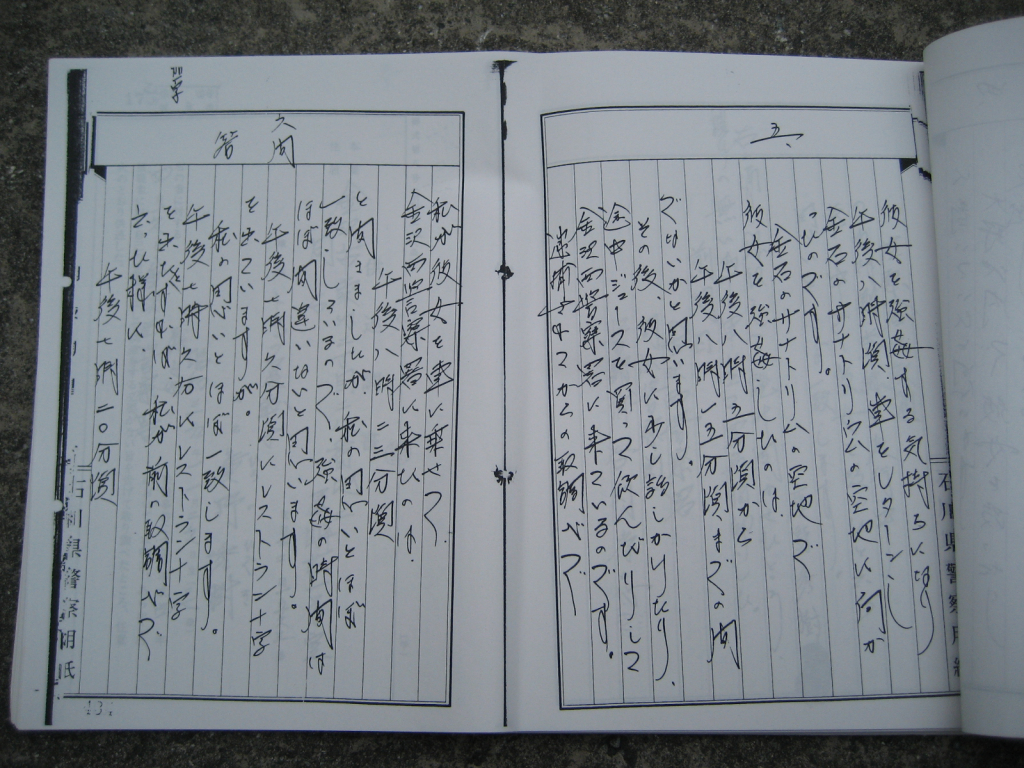 五、
彼女を強姦する気持ちになり
午後八時頃車をUターンし
金石のサナトリウムの空地に向か
ったのです。
金石のサナトリウムの空地で
彼女を強姦したのは
午後八時五分頃から
午後八時一五分頃までの間
ではないかと思います。
その後、彼女と少し話しかけたり、
途中ジュースを買って飲んだりして
金沢西警察署に来ているのです。
逮捕
からの取調べで
私が彼女を車に乗せて
金沢西警察署に来たのは
午後八時二三分頃
と聞きましたが私の思いとほぼ
一致しているので、強姦の時間は
ほぼ間違いないと思います。
六 問
午後七時 分頃にレストラン十字
を出ていますが。
答
私の思いとほぼ一致します。
午後七時 にレストラン十字
を出たすれば、私が前の取調べで
言った様に
午後七時二〇分頃
石川県警察